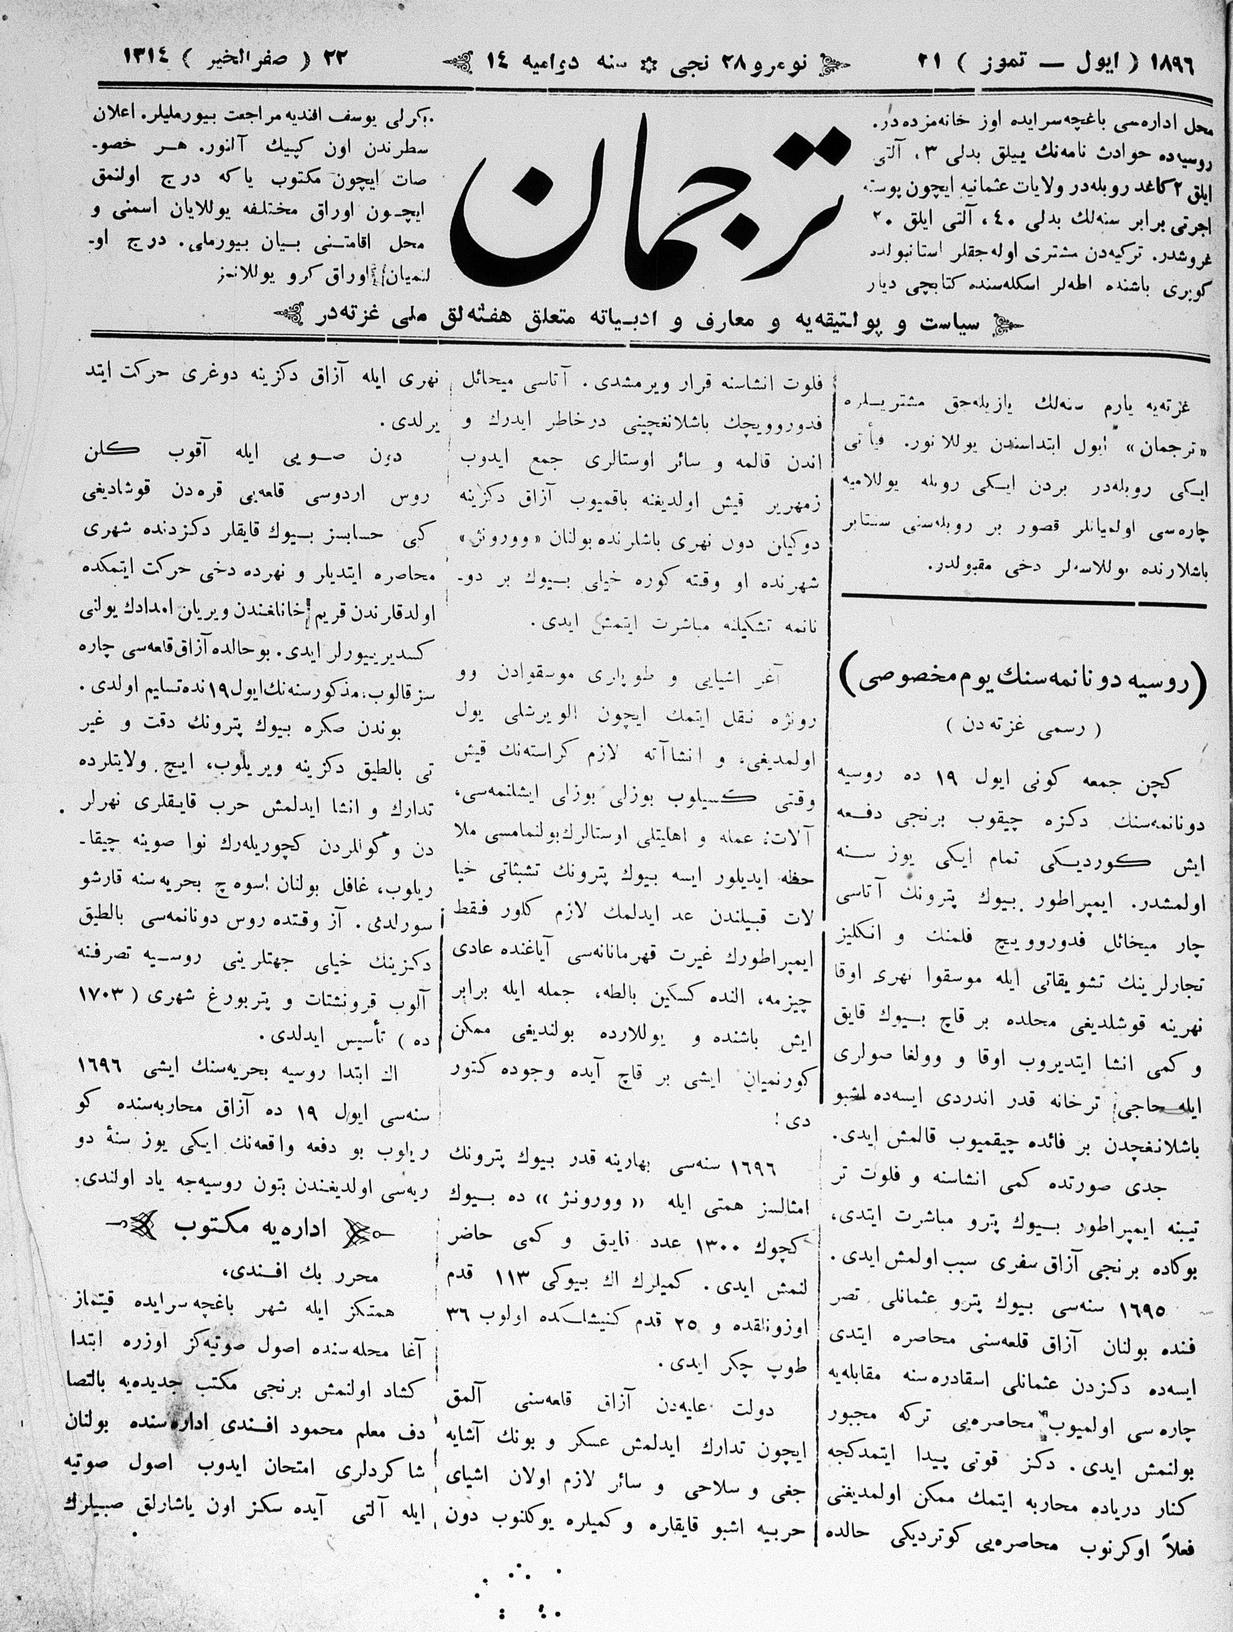 ١٨٩٦ ( ايول — تموز ) ٢١
نومرو ٢٨ نجى ✲ سنه دواميه ١٤
٢٢ ( صفر الخير ) ١٣١٤
محل اداره‌سى باغچه‌سرايده اوز خانه‌مزده‌در.
روسيه‌ده حوادث نامه‌نك ييللق بدلى ٣، آلتى
ايلق ٢ كاغد روبله‌در ولايات عثمانيه ايچون پوسته
اجرتى برابر سنه‌لك بدلى ٤٠، آلتى ايلق ٢٠
غروشدر. تركيه‌دن مشترى اوله‌جقلر استانبولده
كوپرى باشنده اطه‌لر اسكله‌سنده كتابچى ديار
ترجمان
بكرلى يوسف افنديه مراجعت بيورمليلر. اعلان
سطرندن اون كپيك آلنور. هر خصو‐
صات ايچون مكتوب ياكه درج اولنمق
ايچون اوراق مختلفه يوللايان اسمنى و
محل اقامتنى بيان بيورملى. درج او‐
لنميان اوراق كرو يوللانمز
سياست و پولتيقه‌يه و معارف و ادبياته متعلق هفته‌لق ملى غزته‌در
غزته‌يه يارم سنه‌لك يازيله‌جق مشتريلره
«ترجمان» ايول ابتداسندن يوللانور. فيأتى
ايكى روبله‌در بردن ايكى روبله يوللاميه
چاره‌سى اولميانلر قصور بر روبله‌سنى سنتابر
باشلارنده يوللاسه‌لر دخى مقبولدر.
(روسيه دونانمه‌سنك يوم مخصوصى)
( رسمى غزته‌دن )
كچن جمعه كونى ايول ١٩ ده روسيه
دونانمه‌سنك دكزه چيقوب برنجى دفعه
ايش كورديكى تمام ايكى يوز سنه
اولمشدر. ايمپراطور بيوك پترونك آتاسى
چار ميخائل فدوروويچ فلمنك و انكليز
تجارلرينك تشويقاتى ايله موسقوا نهرى اوقا
نهرينه قوشلديغى محلده بر قاچ بيوك قايق
و كمى انشا ايتديروب اوقا و وولغا صولرى
ايله حاجى ترخانه قدر اندردى ايسه‌ده اشبو
باشلانغچدن بر فائده چيقميوب قالمش ايدى.
جدى صورتده كمى انشاسنه و فلوت تر
تيبنه ايمپراطور بيوك پترو مباشرت ايتدى،
بوكاده برنجى آزاق سفرى سبب اولمش ايدى.
١٦٩٥ سنه‌سى بيوك پترو عثمانلى تصر
فنده بولنان آزاق قلعه‌سنى محاصره ايتدى
ايسه‌ده دكزدن عثمانلى اسقادره‌سنه مقابله‌يه
چاره‌سى اولميوب محاصره‌يى تركه مجبور
بولنمش ايدى. دكز قوتى پيدا ايتمدكجه
كنار درياده محاربه ايتمك ممكن اولمديغنى
فعلاً اوكرنوب محاصره‌يى كوترديكى حالده
فلوت انشاسنه قرار ويرمشدى. آتاسى ميخائل
فدوروويچك باشلانغچينى درخاطر ايدرك و
اندن قالمه و سائر اوستالرى جمع ايدوب
زمهرير قيش اولديغنه باقميوب آزاق دكزينه
دوكيلن دون نهرى باشلرنده بولنان «وورونژ»
شهرنده او وقته كوره خيلى بيوك بر دو‐
نانمه تشكيلنه مباشرت ايتمش ايدى.
آغر اشيايى و طوپلرى موسقوادن وو
رونژه نقل ايتمك ايچون الويرشلى يول
اولمديغى، و انشاآته لازم كراسته‌نك قيش
وقتى كسيلوب بوزلى بوزلى ايشلنمه‌سى،
آلات، عمله و اهليتلى اوستالرك بولنمامسى ملا
حظه ايديلور ايسه بيوك پترونك تشبثاتى خيا
لات قبيلندن عد ايدلمك لازم كلور فقط
ايمپراطورك غيرت قهرمانانه‌سى آياغنده عادى
چيزمه، النده كسكين بالطه، جمله ايله برابر
ايش باشنده و يوللارده بولنديغى ممكن
كورنميان ايشى بر قاچ آيده وجوده كتور
دى:
١٦٩٦ سنه‌سى بهارينه قدر بيوك پترونك
امثالسز همتى ايله «وورونژ» ده بيوك
كچوك ١٣٠٠ عدد قايق و كمى حاضر
لنمش ايدى. كميلرك اك بيوكى ١١٣ قدم
اوزونلقده و ٢٥ قدم كنيشلكده اولوب ٣٦
طوپ چكر ايدى.
دولت عليه‌دن آزاق قلعه‌سنى آلمق
ايچون تدارك ايدلمش عسكر و بونك آشايه
جغى و سلاحى و سائر لازم اولان اشياى
حربيه اشبو قايقلره و كميلره يوكلنوب دون
نهرى ايله آزاق دكزينه دوغرى حركت ايتد
يرلدى.
دون صويى ايله آقوب كلن
روس اردوسى قلعه‌يى قره‌دن قوشاديغى
كبى حسابسز بيوك قايقلر دكزدنده شهرى
محاصره ايتديلر و نهرده دخى حركت ايتمكده
اولدقلرندن قريم خانلغندن ويريلن امدادك يولنى
كسديرييورلر ايدى. بو حالده آزاق قلعه‌سى چاره
سز قالوب، مذكور سنه‌نك ايول ١٩ نده تسليم اولدى.
بوندن صكره بيوك پترونك دقت و غير
تى بالطيق دكزينه ويريلوب، ايچ ولايتلرده
تدارك و انشا ايدلمش حرب قايقلرى نهرلر
دن و كوللردن كچوريله‌رك نوا صوينه چيقا‐
ريلوب، غافل بولنان اسوه‌چ بحريه‌سنه قارشو
سورلدى. آز وقتده روس دونانمه‌سى بالطيق
دكزينك خيلى جهتلرينى روسيه تصرفنه
آلوب قرونشتات و پتربورغ شهرى (١٧٠٣
ده) تأسيس ايدلدى.
اك ابتدا روسيه بحريه‌سنك ايشى ١٦٩٦
سنه‌سى ايول ١٩ ده آزاق محاربه‌سنده كو
ريلوب بو دفعه واقعه‌نك ايكى يوز سنهٔ دو
ريه‌سى اولديغندن بتون روسيه‌جه ياد اولندى.
اداره‌يه مكتوب
محرر بك افندى،
همتكز ايله شهر باغچه‌سرايده قيتماز
آغا محله‌سنده اصول صوتيه‌كز اوزره ابتدا
كشاد اولنمش برنجى مكتب جديده‌يه بالتصا
دف معلم محمود افندى اداره‌سنده بولنان
شاكردلرى امتحان ايدوب اصول صوتيه
ايله آلتى آيده سكز اون ياشارلق صبيلرك